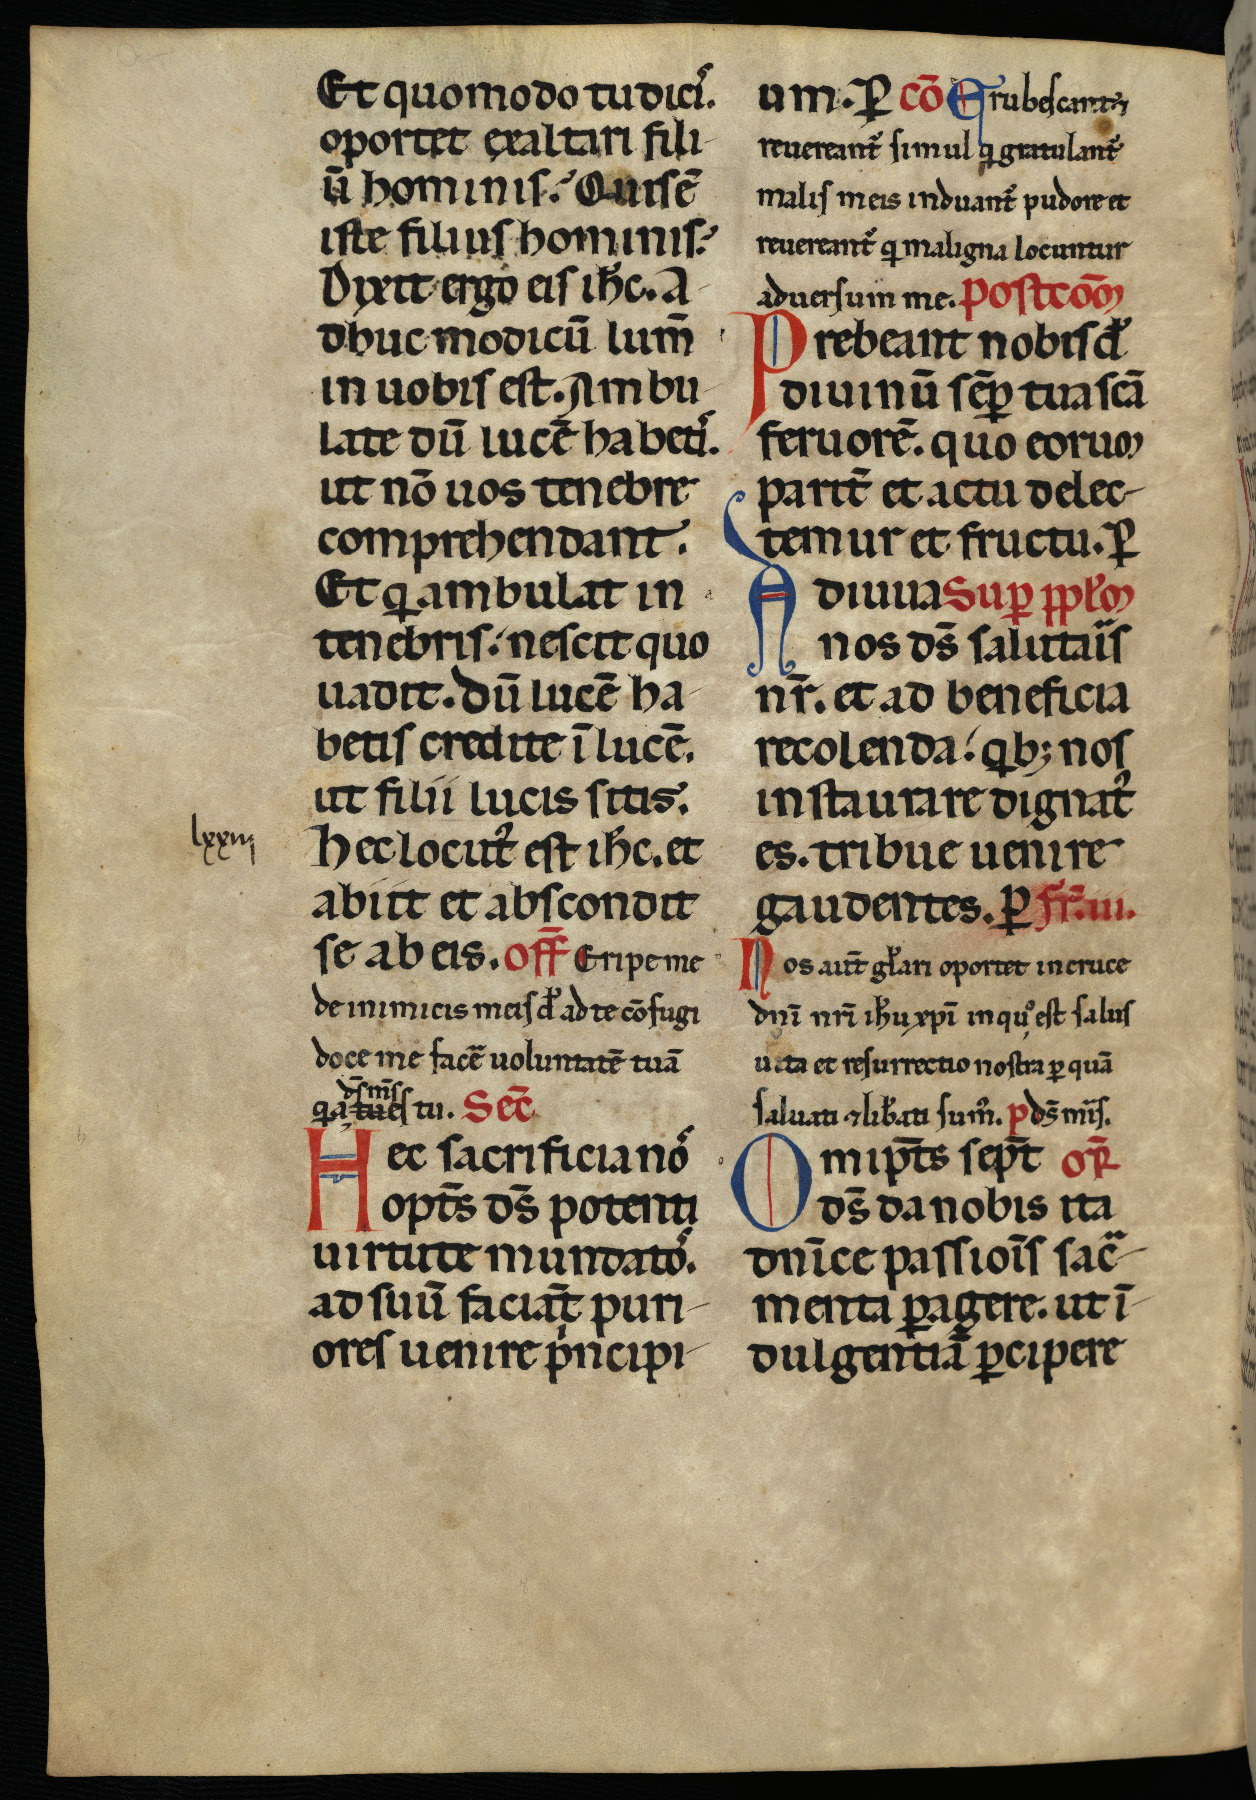 Et quomodo tu dicı̾.
oportet exaltari fili-
ū hominis? Quis ē
iste filius hominis?
Dixit ergo eis ih̄c. A-
dhuc modicū lum̄
in uobis est. Ambu-
late dū lucē habetı̾.
ut nō uos tenebre
comprehendant.
Et q̇ ambulat in
tenebris: nescit quo
uadit. Dū lucē ha-
betis credite ī lucē.
ut filii lucis sitis.
lxxiii
Hec locut᷒ est ih̄c. et
abiit et abscondit
se ab eis. Off̄ Eripe me
de inimicis meis d̄ ad te cōfugi
doce me facē uoluntatē tuā
d̄s m̄s
q̇a tu es tu. Sec̄
Hec sacrificia nō
opt̄s d̄s potenti
uirtute mundatō.
ad suū faciāt puri-
ores uenire pⁱncipi-
um. P̱ cō Erubescant ⁊
reuereant̄ simul q̇ gratulant̄
malis meis induant̄ pudore et
reuereant̄ q̇ maligna locuntur
aduersum me. Postcōm̄
Prebeant nobis d̄
diuinū sēp̱ tua scā
feruorē. quo eorum
parit̄ et actu delec-
temur et fructu. P̱
Adiuua Sup̱ pp̄lm
nos d̄s salutaı̈s
nr̄. et ad beneficia
recolenda: q̇bꝫ nos
instaurare dignat᷒
es. tribue uenire
gaudentes. P̱ Fr̄. iii.
Nos aut̄ gl̄ari oportet in cruce
dn̄i nr̄i ih̄u xp̄i in quo est salus
uita et resurrectio nostra p̱ quā
saluati ⁊ lib̄ati sum᷒. p d̄s mis̄.
Omip̄ts sep̄t or̄
d̄s da nobis ita
dn̄ice passiōis sac̄-
menta p̱agere. ut ī-
dulgentiā p̱cipere